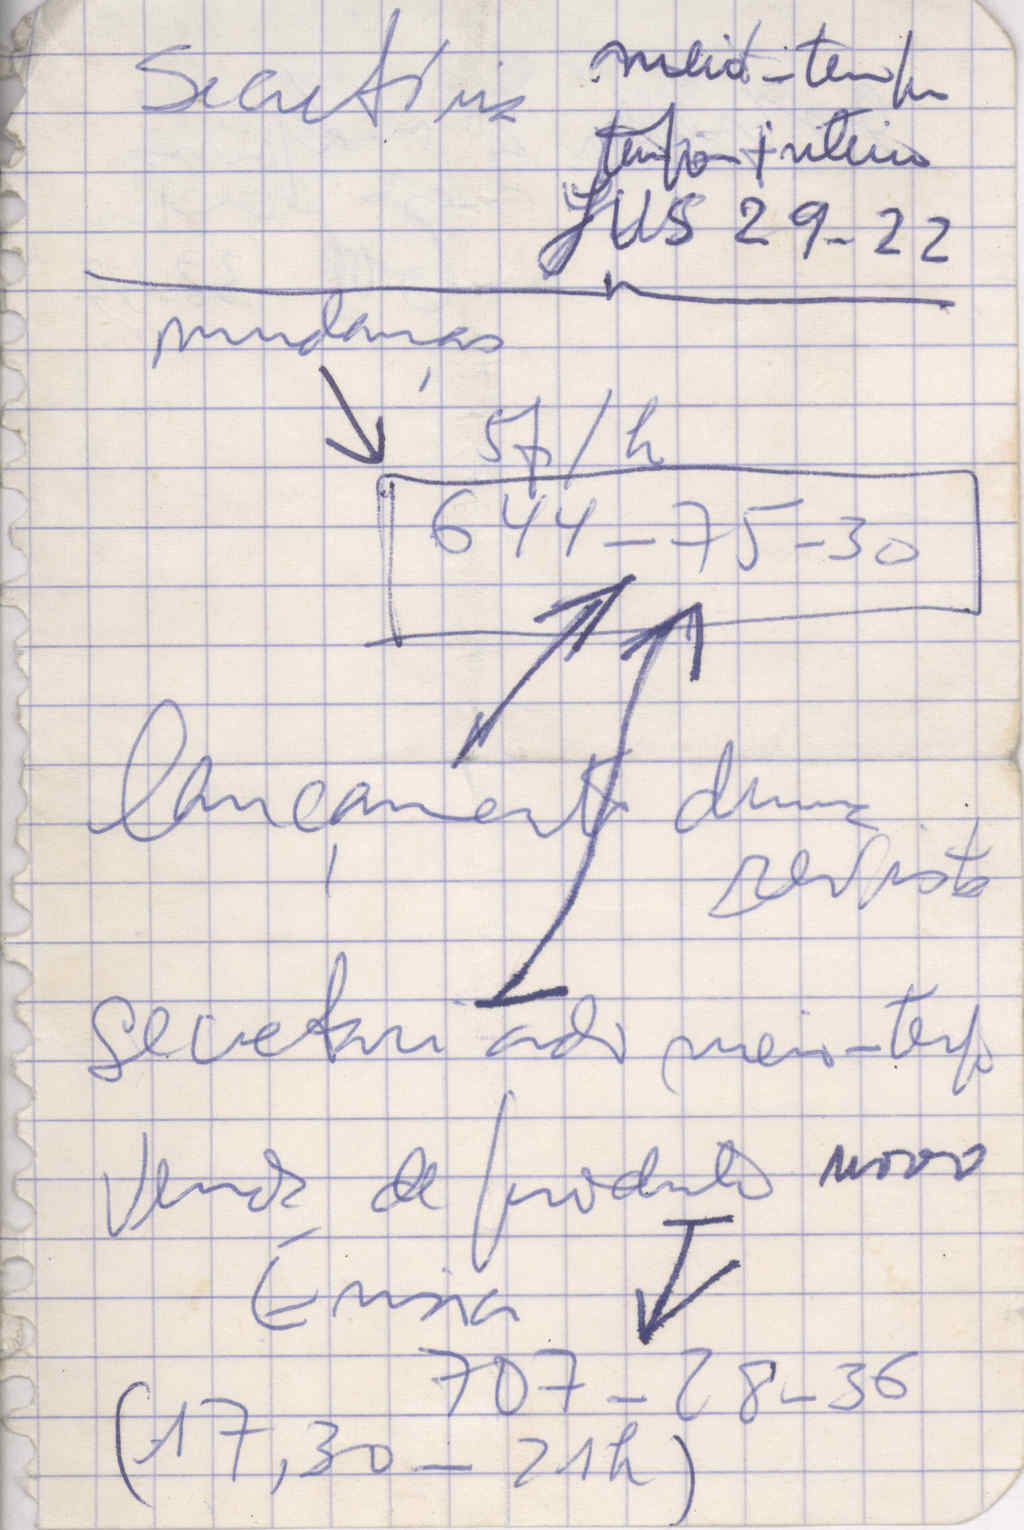 Secretária meio-tempo
tempo-inteiro
JUS 29-22
mudanças
5f/h
644-75-30
lançamento duma
revista
secretariado meio-tempo
Venda de produto novo
707-28-36
(17,30 - 21h)